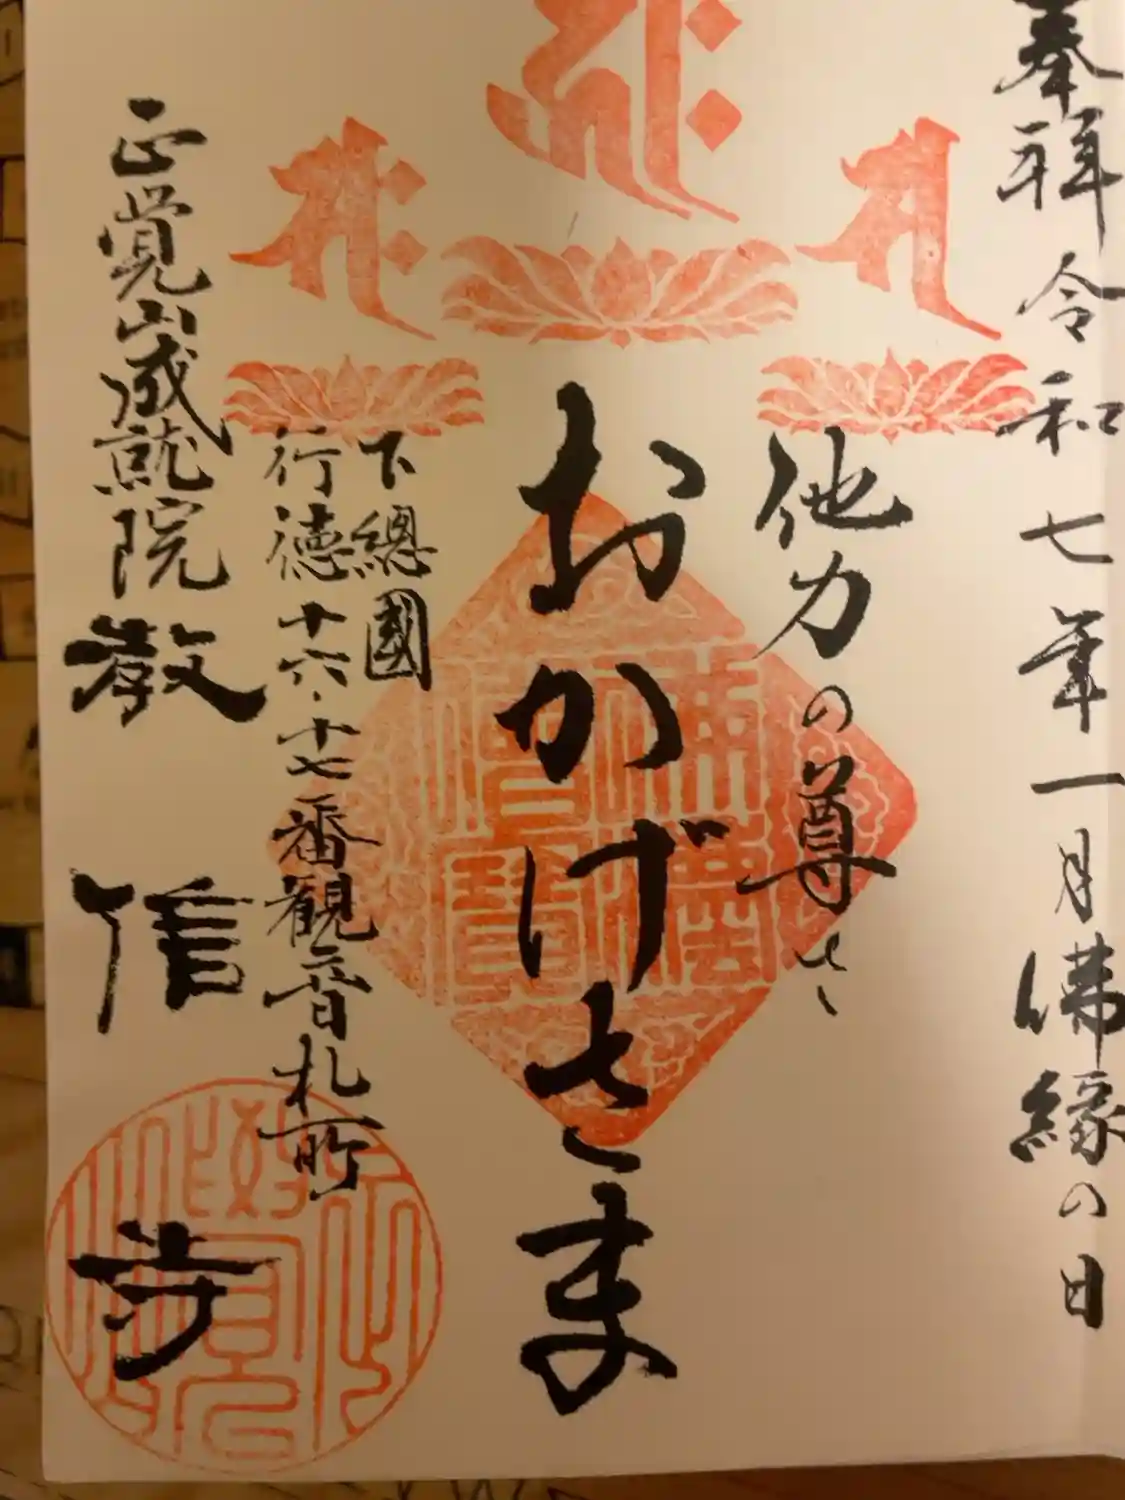 奉拝 令和七年一月佛縁の日
他力の尊さ
おかげさま
佛法僧寶
下總國
行徳十六、十七番観音札所
正覚山成就院教信寺